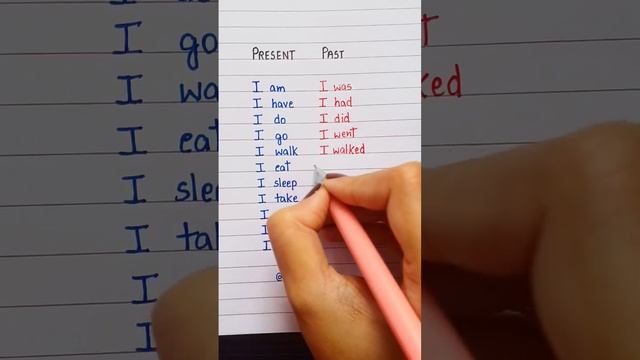 PRESENT PAST
I am I was
I have I had
I do I did
I go I went
I walk I walked
I eat
I sleep
I take
I
I
I
@